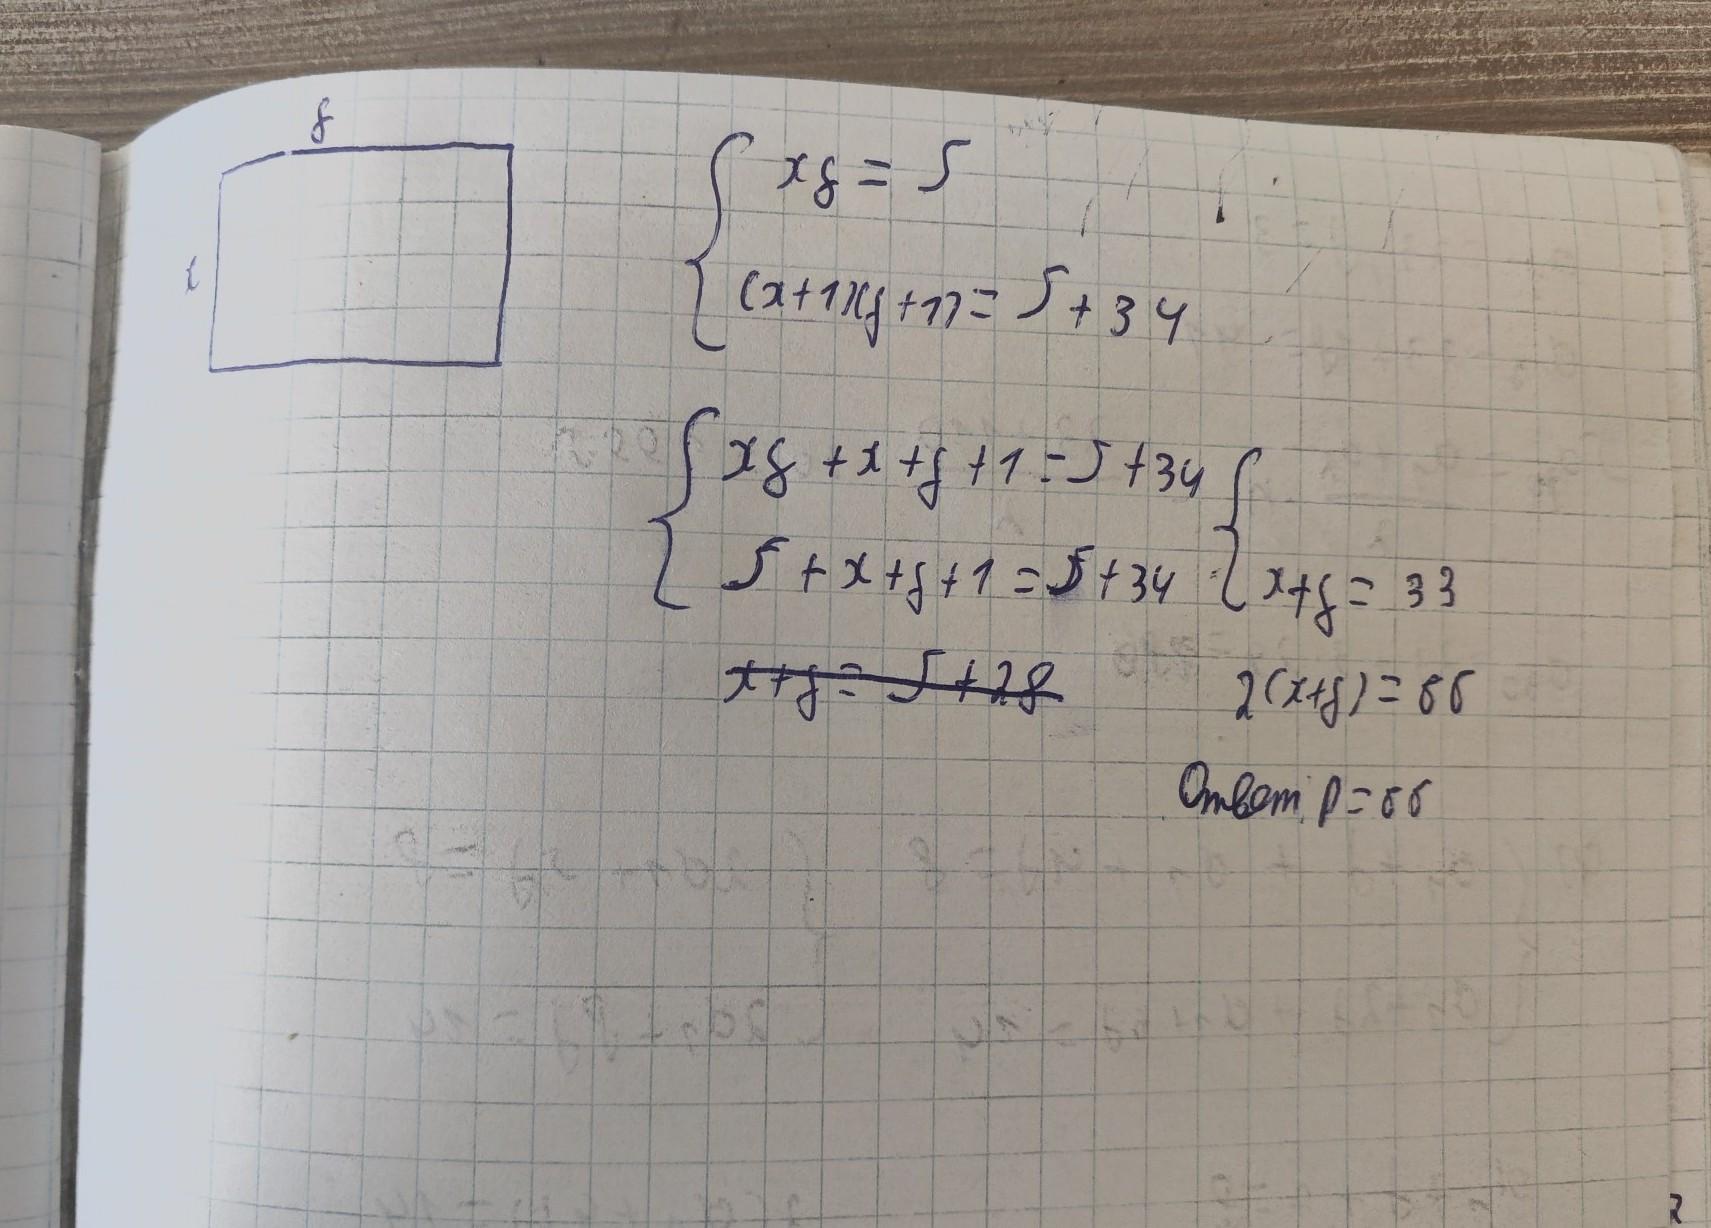 y
x
xy = S
(x+1)(y+1) = S + 34
xy + x + y + 1 = S + 34
S + x + y + 1 = S + 34
x + y = 33
x + y = S + 28
2(x+y) = 66
Ответ: P = 66
2